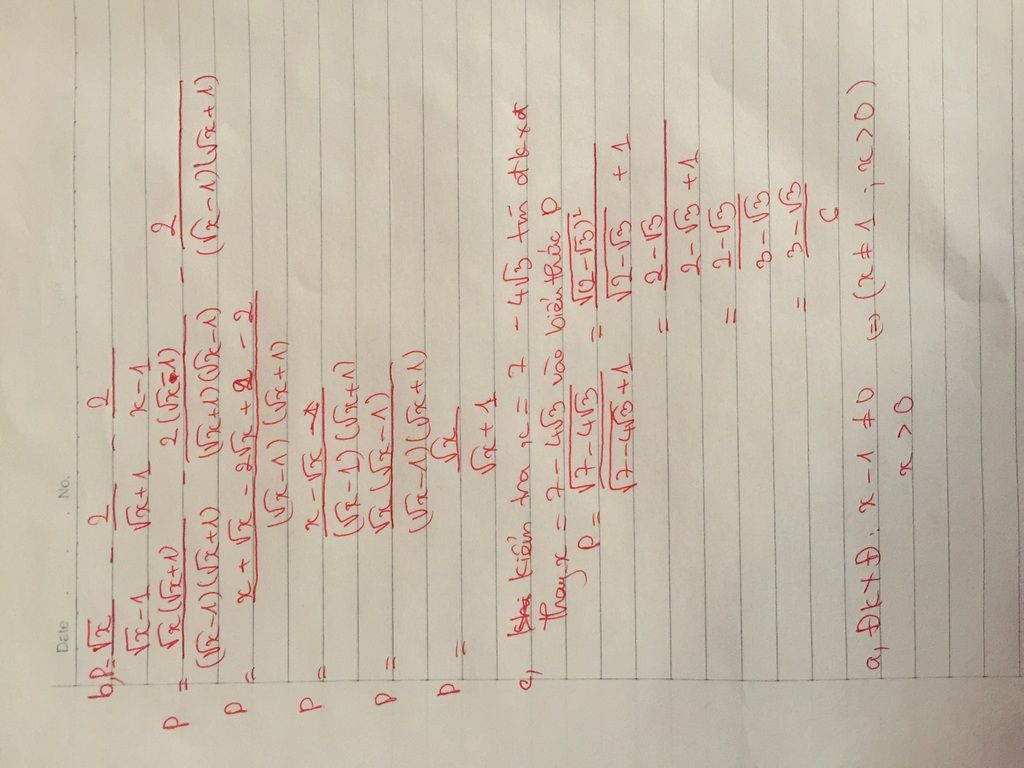 Date No.
b, P = √x/(√x-1) - 2/(√x+1) - 2/(x-1)
P = √x(√x+1)/((√x-1)(√x+1)) - 2(√x-1)/((√x+1)(√x-1)) - 2/((√x-1)(√x+1))
P = (x + √x - 2√x + 2 - 2)/((√x-1)(√x+1))
P = (x - √x)/((√x-1)(√x+1))
P = √x(√x-1)/((√x-1)(√x+1))
P = √x/(√x+1)
c, kiểm tra x = 7 - 4√3 t/m đkxđ
thay x = 7 - 4√3 vào biểu thức P
P = √(7-4√3)/(√(7-4√3)+1) = √((2-√3)²)/(√(2-√3)+1)
= (2-√3)/(2-√3+1)
= (2-√3)/(3-√3)
= (3-√3)/6
a, ĐKXĐ: x-1≠0 ⇔ (x≠1; x>0)
x>0